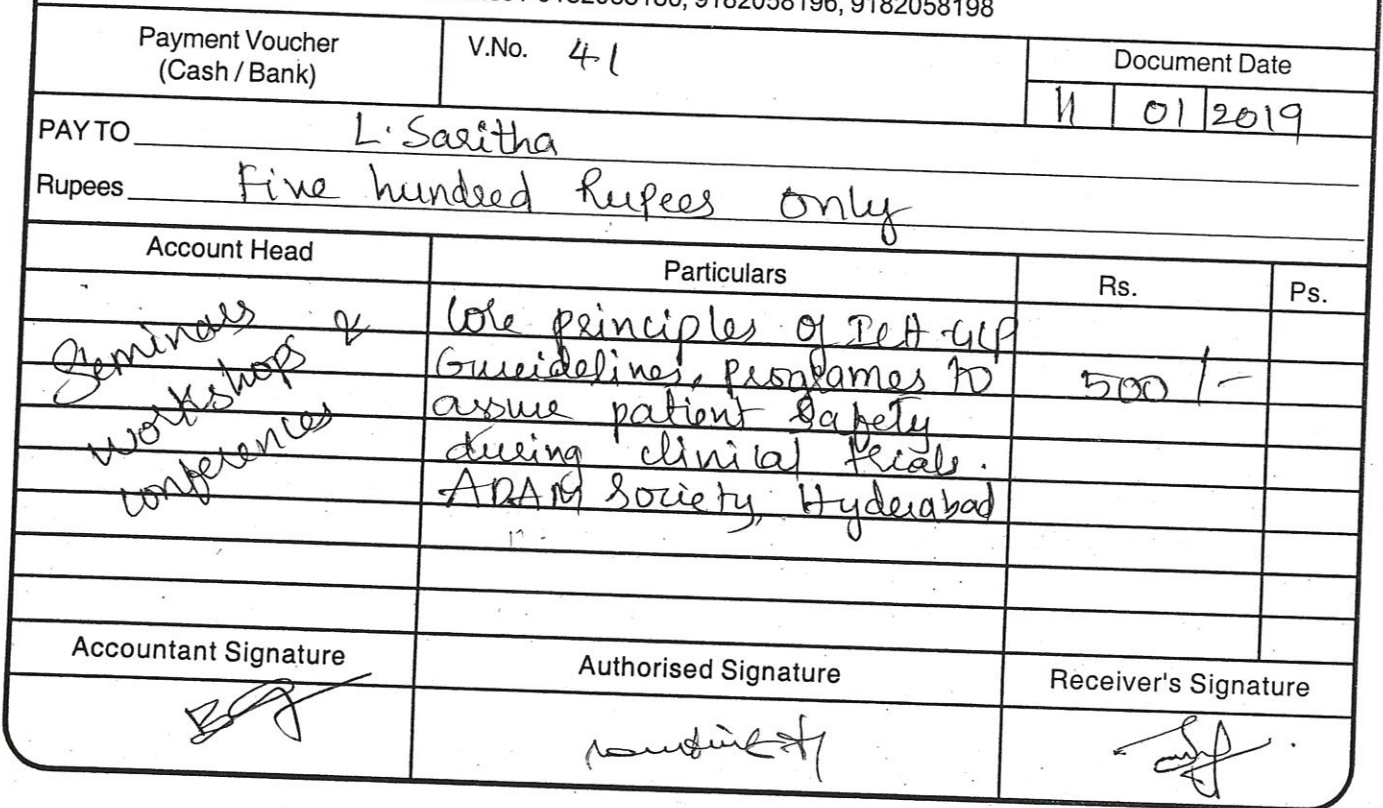 9182058196, 9182058198
Payment Voucher
(Cash / Bank)
V.No. 41
Document Date
11 01 2019
PAY TO L. Saritha
Rupees Five hundred Rupees Only
Account Head
Particulars
Rs.
Ps.
Seminars
workshops &
conferences
Core principles of ICH-GCP
Gueidelines, progames to
assure patient Safety
during clinical trials.
ADAM Society, Hyderabad
500/-
Accountant Signature
Authorised Signature
Receiver's Signature